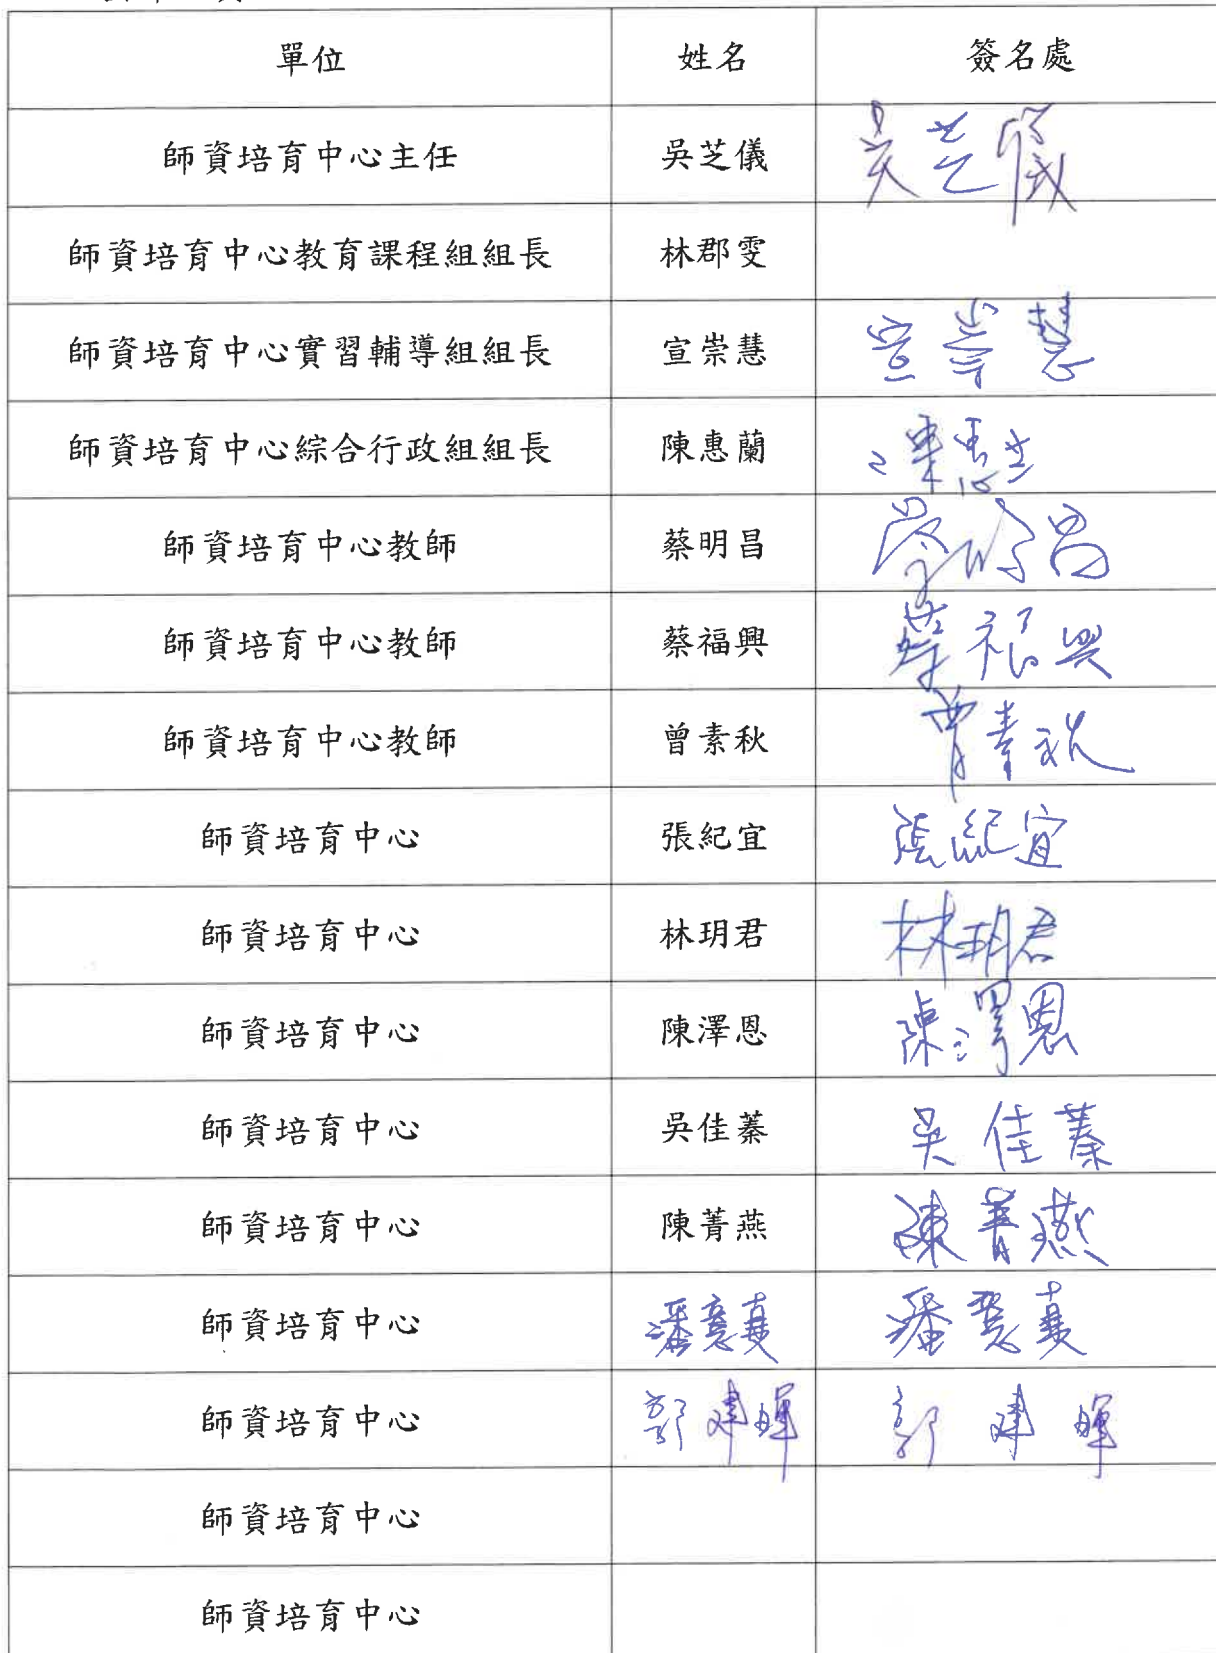 單位 姓名 簽名處
師資培育中心主任 吳芝儀 吳芝儀
師資培育中心教育課程組組長 林郡雯
師資培育中心實習輔導組組長 宣崇慧 宣崇慧
師資培育中心綜合行政組組長 陳惠蘭 陳惠兰
師資培育中心教師 蔡明昌 蔡明昌
師資培育中心教師 蔡福興 蔡福興
師資培育中心教師 曾素秋 曾素秋
師資培育中心 張紀宜 張紀宜
師資培育中心 林玥君 林玥君
師資培育中心 陳澤恩 陳澤恩
師資培育中心 吳佳蓁 吳佳蓁
師資培育中心 陳菁燕 陳菁燕
師資培育中心 潘意真 潘意真
師資培育中心 郭建暉 郭建暉
師資培育中心
師資培育中心